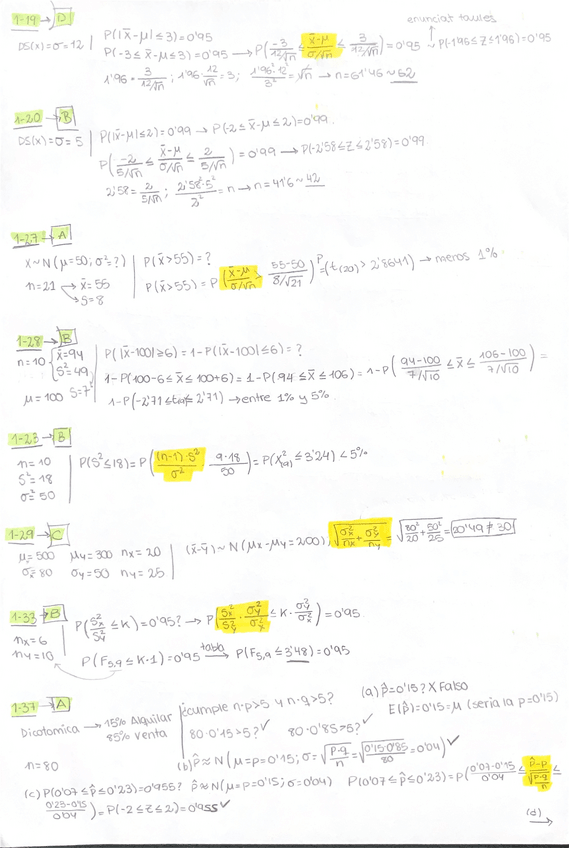 1-19 → D
enunciat taules
DS(x)=σ=12 | P(|x̄-μ|≤3)=0'95
P(-3≤x̄-μ≤3)=0'95 → P(-3/12/√n ≤ x̄-μ/σ/√n ≤ 3/12/√n)=0'95 ~ P(-1'96≤Z≤1'96)=0'95
1'96=3/12/√n; 1'96·12/√n=3; 1'96²·12²/3²=√n → n=61'46~62
1-20 → B
DS(x)=σ=5 | P(|x̄-μ|≤2)=0'99 → P(-2≤x̄-μ≤2)=0'99.
P(-2/5/√n ≤ x̄-μ/σ/√n ≤ 2/5/√n)=0'99 → P(-2'58≤Z≤2'58)=0'99.
2'58=2/5/√n; 2'58²·5²/2²=n → n=41'6~42
1-27 → A
X~N(μ=50; σ²=?) | P(x̄>55)=?
n=21 → x̄=55
S=8
P(x̄>55)=P(x̄-μ/σ/√n > 55-50/8/√21) P=(t(20)>2'8641) → menos 1%.
1-28 → B
n=10 { x̄=94 | P(|x̄-100|≥6)=1-P(|x̄-100|≤6)=?
S²=49
μ=100 S=7 | 1-P(100-6≤x̄≤100+6)=1-P(94≤x̄≤106)=1-P(94-100/7/√10 ≤x̄≤ 106-100/7/√10)=
1-P(-2'71≤t(9)≤2'71) → entre 1% y 5%.
1-23 → B
n=10 | P(S²≤18)=P((n-1)·S²/σ² · 9·18/50)=P(X²(9)≤3'24)<5%
S²=18
σ²=50
1-29 → C
μx=500 μy=300 nx=20 | (x̄-ȳ)~N(μx-μy=200), √σx²/nx+σy²/ny = √80²/20+50²/25 = 20'49≠30
σx=80 σy=50 ny=25
1-33 → B
nx=6 | P(Sx²/Sy²≤K)=0'95? → P(Sx²/Sy²·σy²/σx²≤K·σy²/σx²)=0'95.
ny=10 | P(F5,9≤K·1)=0'95 tabla → P(F5,9≤3'48)=0'95
1-37 → A
¿cumple n·p>5 y n·q>5?
(a) p̂=0'15? X Falso
Dicotomica → 15% Alquilar
85% venta
80·0'15>5?✓ 80·0'85>5?✓ E(p̂)=0'15=μ (seria la p=0'15)
n=80 (b) p̂≈N(μ=p=0'15; σ=√p·q/n=√0'15·0'85/80=0'04) ✓
(c) P(0'07≤p̂≤0'23)=0'955? p̂≈N(μ=p=0'15; σ=0'04) P(0'07≤p̂≤0'23)=P(0'07-0'15/0'04≤p̂-p/√p·q/n≤
0'23-0'15/0'04)=P(-2≤Z≤2)=0'955✓
(d) →